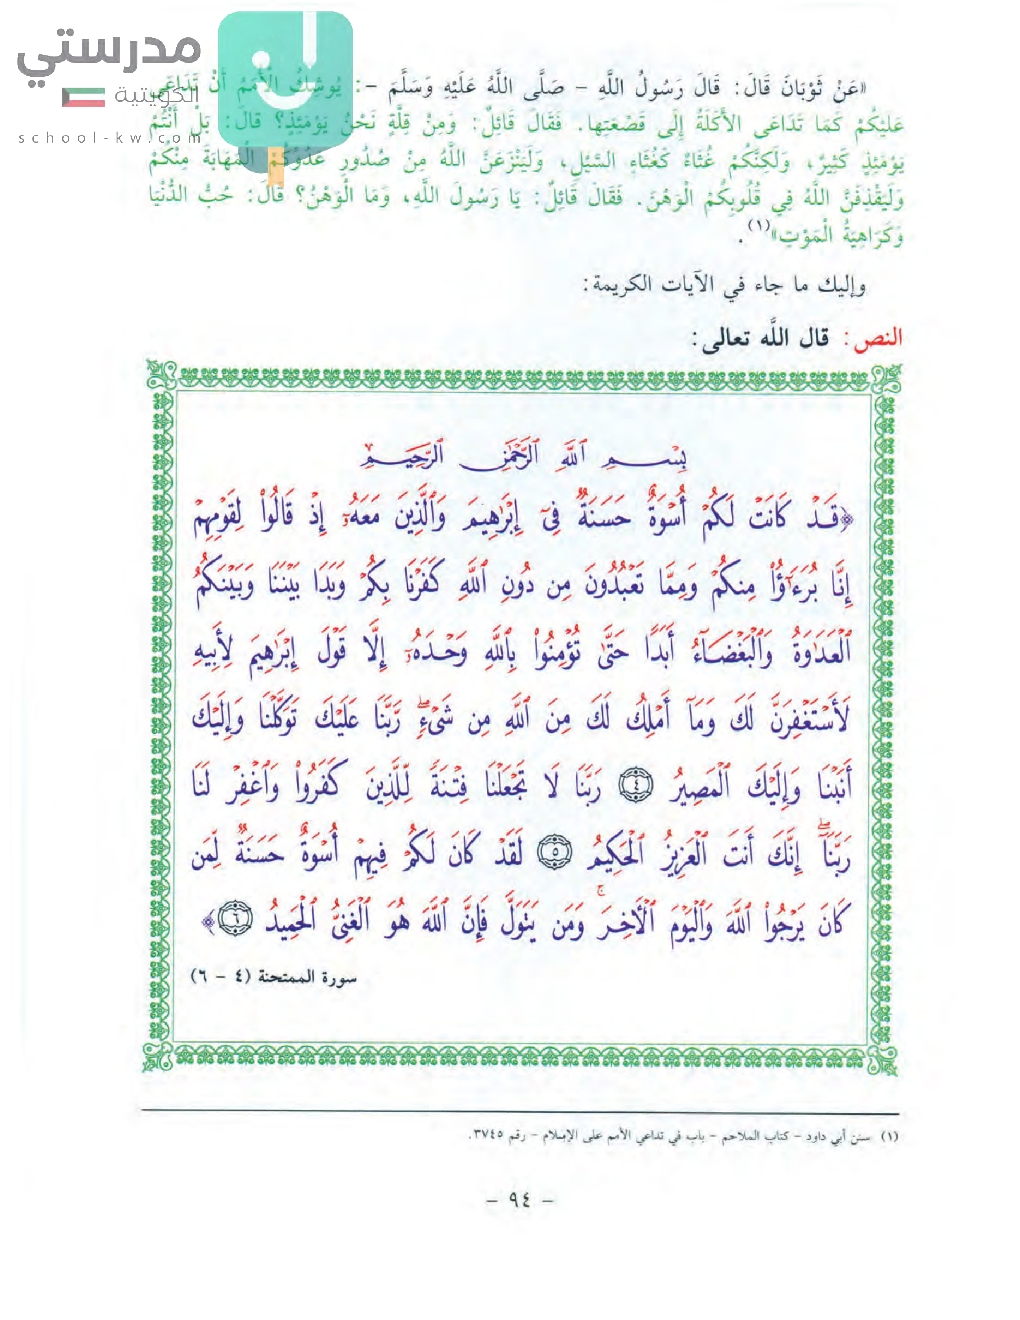 مدرستي
الكويتية
school-kw.com
«عَنْ ثَوْبَانَ قَالَ: قَالَ رَسُولُ اللَّهِ - صَلَّى اللَّهُ عَلَيْهِ وَسَلَّمَ -: يُوشِكُ الْأُمَمُ أَنْ تَدَاعَى
عَلَيْكُمْ كَمَا تَدَاعَى الأَكَلَةُ إِلَى قَصْعَتِهَا. فَقَالَ قَائِلٌ: وَمِنْ قِلَّةٍ نَحْنُ يَوْمَئِذٍ؟ قَالَ: بَلْ أَنْتُمْ
يَوْمَئِذٍ كَثِيرٌ، وَلَكِنَّكُمْ غُثَاءٌ كَغُثَاءِ السَّيْلِ، وَلَيَنْزَعَنَّ اللَّهُ مِنْ صُدُورِ عَدُوِّكُمُ الْمَهَابَةَ مِنْكُمْ
وَلَيَقْذِفَنَّ اللَّهُ فِي قُلُوبِكُمْ الْوَهْنَ. فَقَالَ قَائِلٌ: يَا رَسُولَ اللَّهِ، وَمَا الْوَهْنُ؟ قَالَ: حُبُّ الدُّنْيَا
وَكَرَاهِيَةُ الْمَوْتِ»(١).
وإليك ما جاء في الآيات الكريمة:
النص: قال اللَّه تعالى:
بِسْمِ ٱللَّهِ ٱلرَّحْمَٰنِ ٱلرَّحِيمِ
﴿قَدْ كَانَتْ لَكُمْ أُسْوَةٌ حَسَنَةٌ فِىٓ إِبْرَٰهِيمَ وَٱلَّذِينَ مَعَهُۥٓ إِذْ قَالُوا۟ لِقَوْمِهِمْ
إِنَّا بُرَءَٰٓؤُا۟ مِنكُمْ وَمِمَّا تَعْبُدُونَ مِن دُونِ ٱللَّهِ كَفَرْنَا بِكُمْ وَبَدَا بَيْنَنَا وَبَيْنَكُمُ
ٱلْعَدَٰوَةُ وَٱلْبَغْضَآءُ أَبَدًا حَتَّىٰ تُؤْمِنُوا۟ بِٱللَّهِ وَحْدَهُۥٓ إِلَّا قَوْلَ إِبْرَٰهِيمَ لِأَبِيهِ
لَأَسْتَغْفِرَنَّ لَكَ وَمَآ أَمْلِكُ لَكَ مِنَ ٱللَّهِ مِن شَىْءٍ ۖ رَّبَّنَا عَلَيْكَ تَوَكَّلْنَا وَإِلَيْكَ
أَنَبْنَا وَإِلَيْكَ ٱلْمَصِيرُ ٤ رَبَّنَا لَا تَجْعَلْنَا فِتْنَةً لِّلَّذِينَ كَفَرُوا۟ وَٱغْفِرْ لَنَا
رَبَّنَآ ۖ إِنَّكَ أَنتَ ٱلْعَزِيزُ ٱلْحَكِيمُ ٥ لَقَدْ كَانَ لَكُمْ فِيهِمْ أُسْوَةٌ حَسَنَةٌ لِّمَن
كَانَ يَرْجُوا۟ ٱللَّهَ وَٱلْيَوْمَ ٱلْءَاخِرَ ۚ وَمَن يَتَوَلَّ فَإِنَّ ٱللَّهَ هُوَ ٱلْغَنِىُّ ٱلْحَمِيدُ ٦﴾
سورة الممتحنة (٤ - ٦)
(١) سنن أبي داود - كتاب الملاحم - باب في تداعي الأمم على الإسلام - رقم ٣٧٤٥.
- ٩٤ -